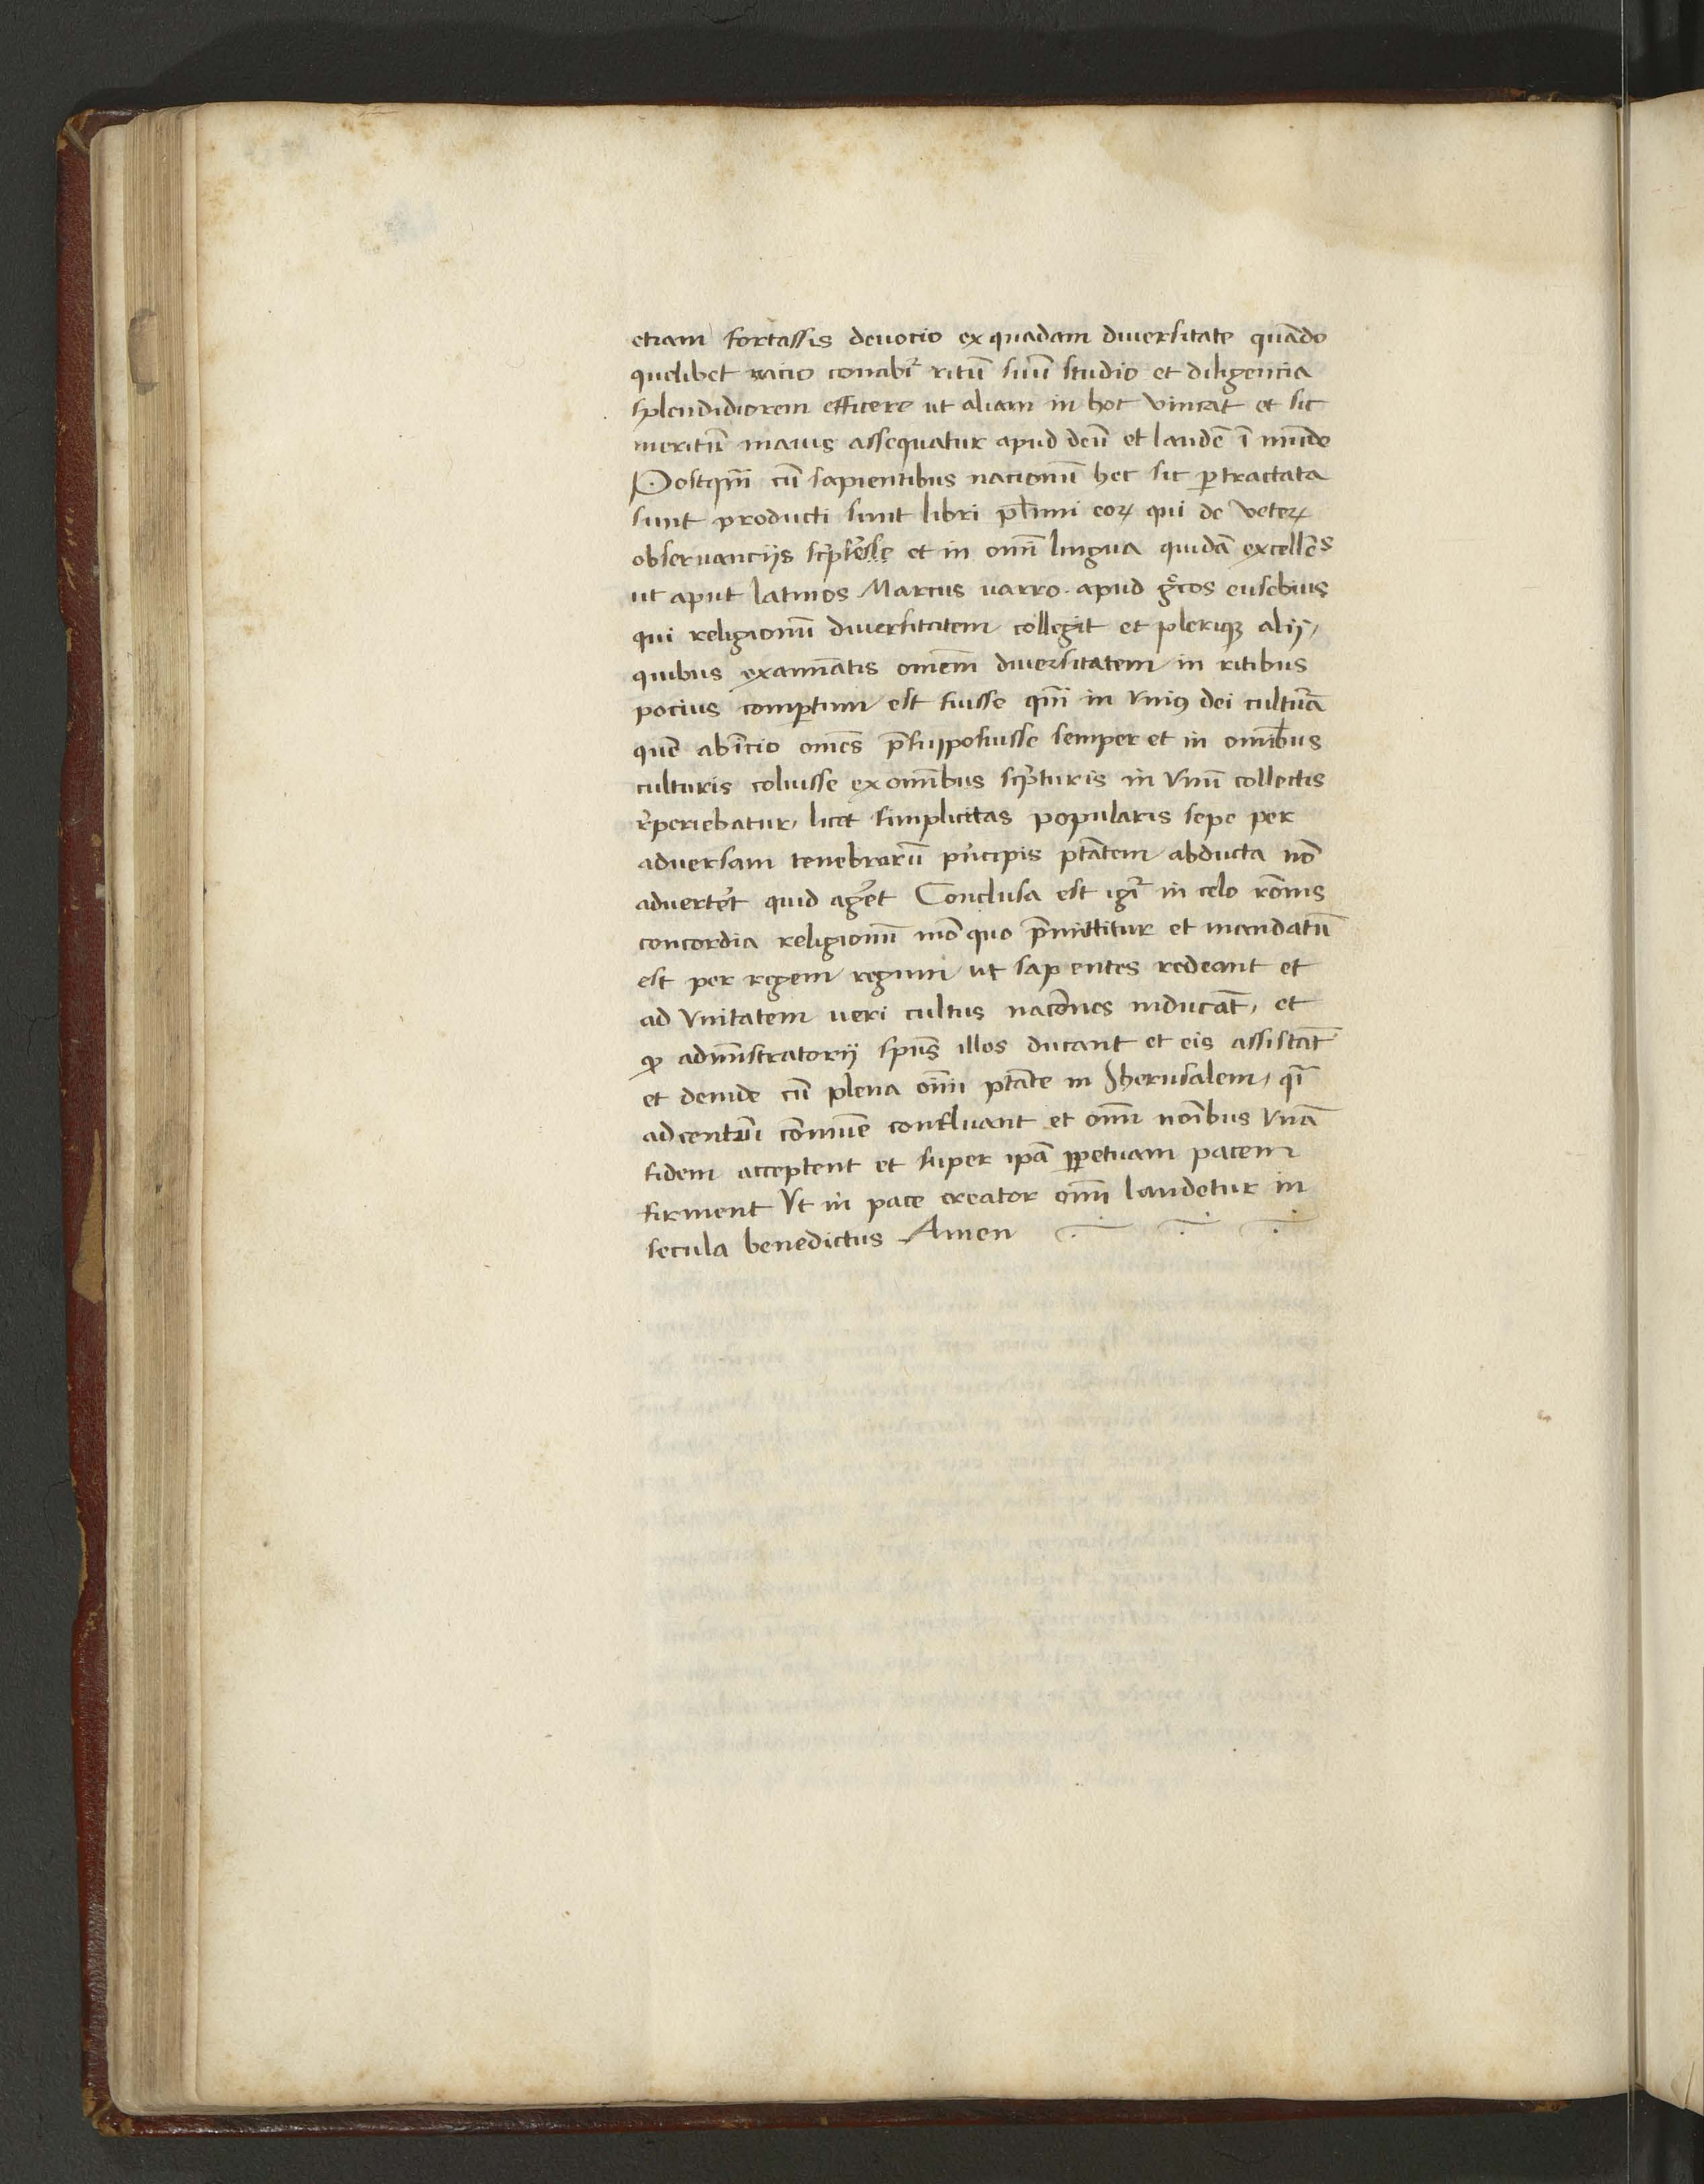 etiam fortassis deuocio ex quadam diuersitate quādo
quelibet nacio conabit᷑ ritū suū studio et diligencia
splendidiorem efficere ut aliam in hoc vincat et sic
meritū maius assequatur apud deū et laudē ī mūdo
Postqm̄ cū sapientibus nacionū hec sic ꝑtractata
sunt producti sunt libri pl̄imi eoꝝ qui de veteꝝ
obseruancijs sc̄ptẽsse et in om̄i lingua quidā excellēs
ut aput latinos Marcus varro. apud gͣ̄cos eusebius
qui religionū diuersitatem collegit et pleriqꝫ alij,
quibus examīatis omēm diuersitatem in ritibus
pocius comꝑtum est fuisse qm̄ in vniꝰ dei cultura
quē ab īicio omēs p̄suppossuisse semper et in omībus
culturis coluisse ex omībus scͥpturis in vnū collectis
r̓periebatur, licet simplicitas popularis sepe per
aduersam tenebrarū pͥncipis ptātem abducta nō
aduertẽt quid agẽt Conclusa est igit᷑ in celo rōnis
concordia religionū mō quo p̄mittitur et mandatū
est per regem regum ut sapientes redeant et
ad vnitatem ueri cultus nacōnes inducāt, et
ꝙ admīstratorij spūs illos ducant et eis assistāt
et deinde cū plena oīm ptāte in Jherusalem, qͣ̄
ad centrū cōmūe confluant et oīm noībus vnā
fidem acceptent et super ipā ꝑpetuam pacem
firment Vt in pace creator oīm laudetur in
secula benedictus Amen